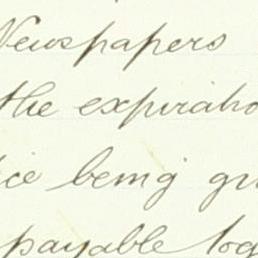 Newspapers
the expiratio
ice being gi
payable tog